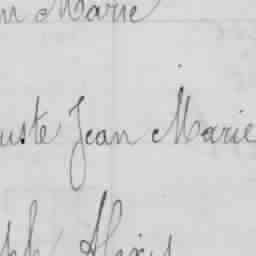 n Marie
uste Jean Marie
ph Alexis